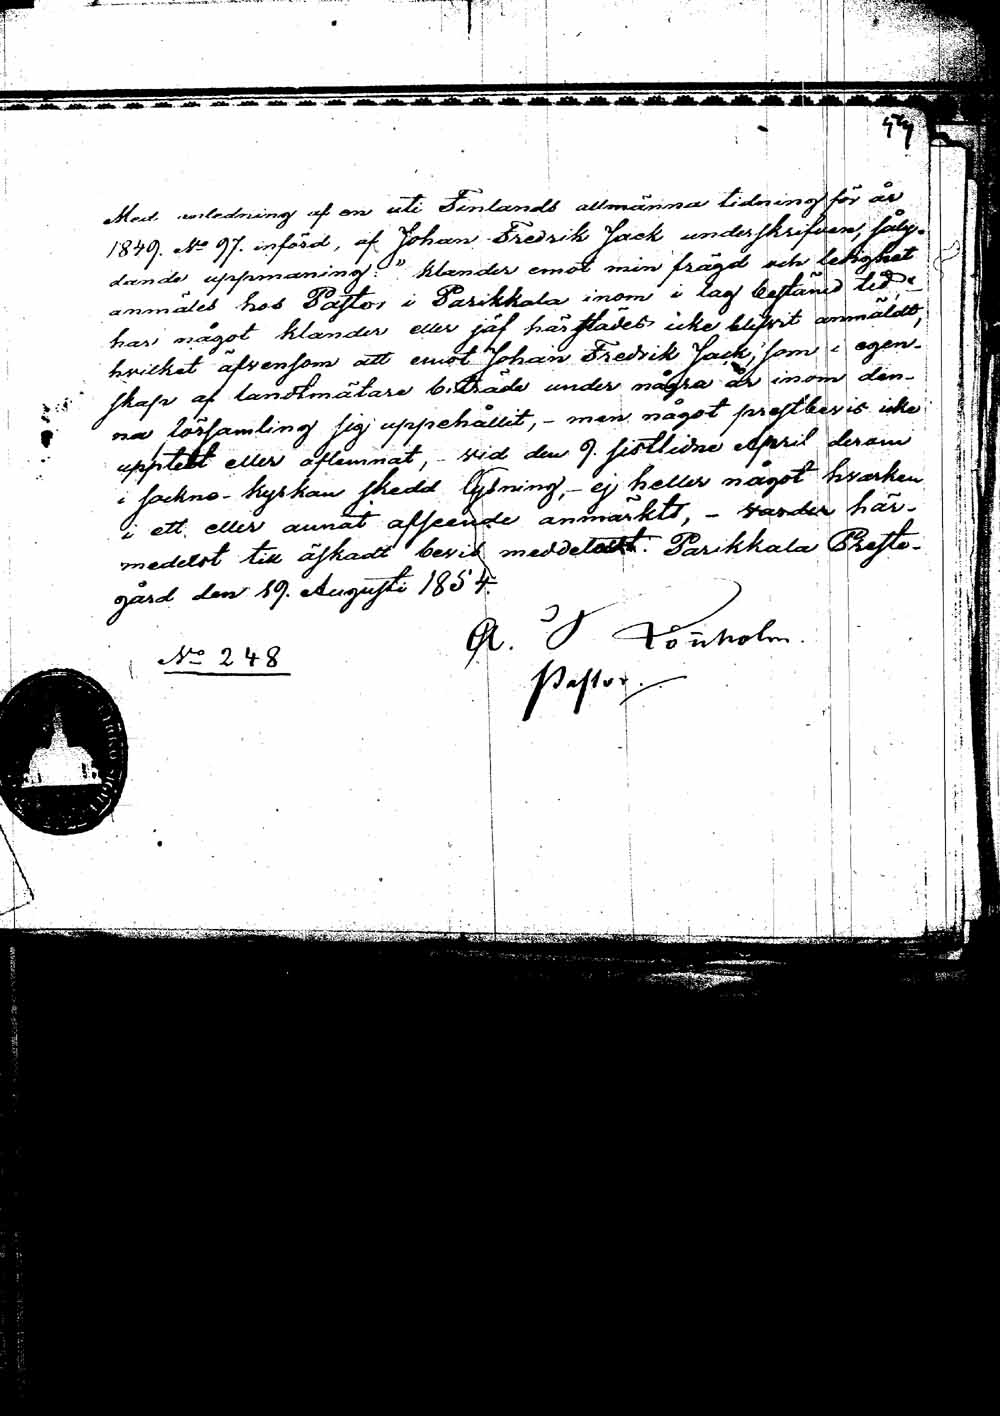 Med anledning af en uti Finlands allmänna tidning för år
1849. No 97. införd, af Johan Fredrik Jack underskrifven, såly-
dande uppmaning: "klander emot min frägd och ledighet
anmäles hos Pastor i Parikkala inom i lag bestämd tid,"
har något klander eller jäf härstädes icke blifvit anmäldt,
hvilket äfvensom att emot Johan Fredrik Jack, som i egen-
skap af landtmätare biträde under några år inom den-
na församling sig uppehållit, – men något prestbevis icke
uppte't eller aflemnat, – vid den 9. sistlidne April derom
i sockne-kyrkan skedd lysning, – ej heller något hvarken
i ett eller annat afseende anmärkts, – varder här-
medelst till äskadt bevis meddeladt. Parikkala Preste-
gård den 19. Augusti 1854.
A. Lönholm.
Pastor.
No 248